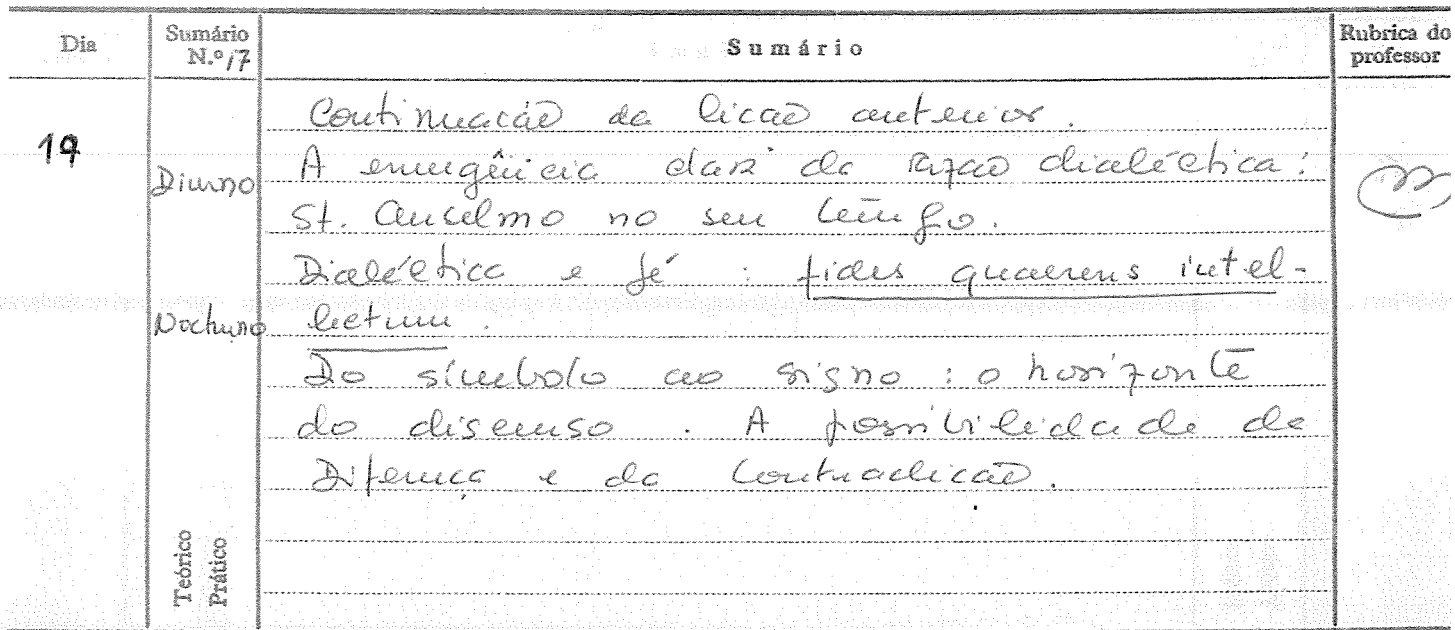 Dia
Sumário
N.º 17
Sumário
Rubrica do
professor
19
Diurno
Nocturno
Teórico
Prático
Continuação da lição anterior.
A emergência da razão dialéctica:
St. Anselmo no seu tempo.
Dialéctica e fé: fides quaerens intel-
lectum.
Do símbolo ao signo: o horizonte
do discurso. A possibilidade da
Diferença e da Contradição.